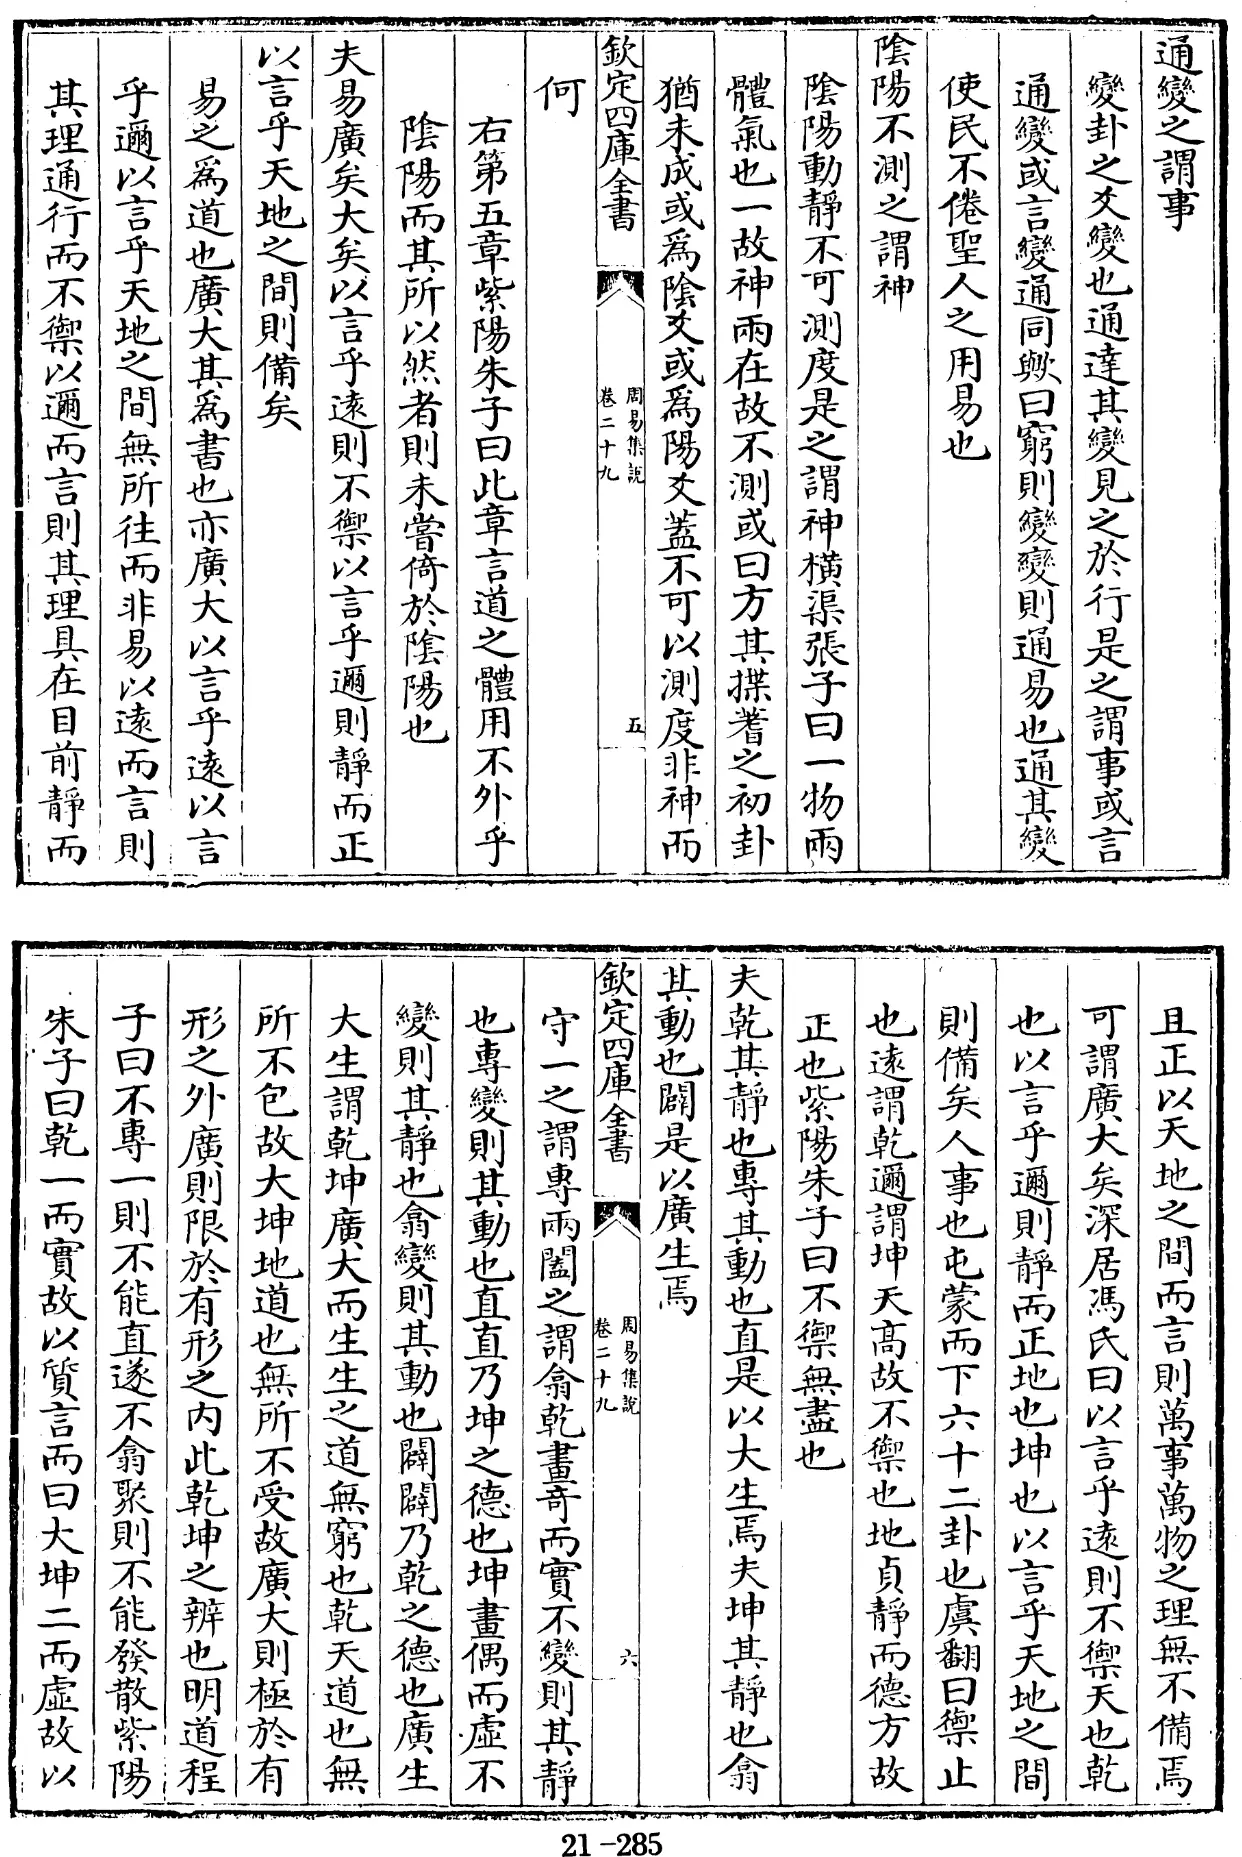 通變之謂事
變卦之爻變也通達其變見之於行是之謂事或言
通變或言變通同歟曰窮則變變則通易也通其變
使民不倦聖人之用易也
陰陽不測之謂神
陰陽動靜不可測度是之謂神橫渠張子曰一物兩
體氣也一故神兩在故不測或曰方其揲蓍之初卦
猶未成或為陰爻或為陽爻蓋不可以測度非神而
欽定四庫全書
周易集說
卷二十九
五
何
右第五章紫陽朱子曰此章言道之體用不外乎
陰陽而其所以然者則未嘗倚於陰陽也
夫易廣矣大矣以言乎遠則不禦以言乎邇則靜而正
以言乎天地之間則備矣
易之為道也廣大其為書也亦廣大以言乎遠以言
乎邇以言乎天地之間無所往而非易以遠而言則
其理通行而不禦以邇而言則其理具在目前靜而
且正以天地之間而言則萬事萬物之理無不備焉
可謂廣大矣深居馮氏曰以言乎遠則不禦天也乾
也以言乎邇則靜而正地也坤也以言乎天地之間
則備矣人事也屯蒙而下六十二卦也虞翻曰禦止
也遠謂乾邇謂坤天高故不禦也地貞靜而德方故
正也紫陽朱子曰不禦無盡也
夫乾其靜也專其動也直是以大生焉夫坤其靜也翕
其動也闢是以廣生焉
欽定四庫全書
周易集說
卷二十九
六
守一之謂專兩闔之謂翕乾畫奇而實不變則其靜
也專變則其動也直直乃坤之德也坤畫偶而虛不
變則其靜也翕變則其動也闢闢乃乾之德也廣生
大生謂乾坤廣大而生生之道無窮也乾天道也無
所不包故大坤地道也無所不受故廣大則極於有
形之外廣則限於有形之內此乾坤之辨也明道程
子曰不專一則不能直遂不翕聚則不能發散紫陽
朱子曰乾一而實故以質言而曰大坤二而虛故以
21-285